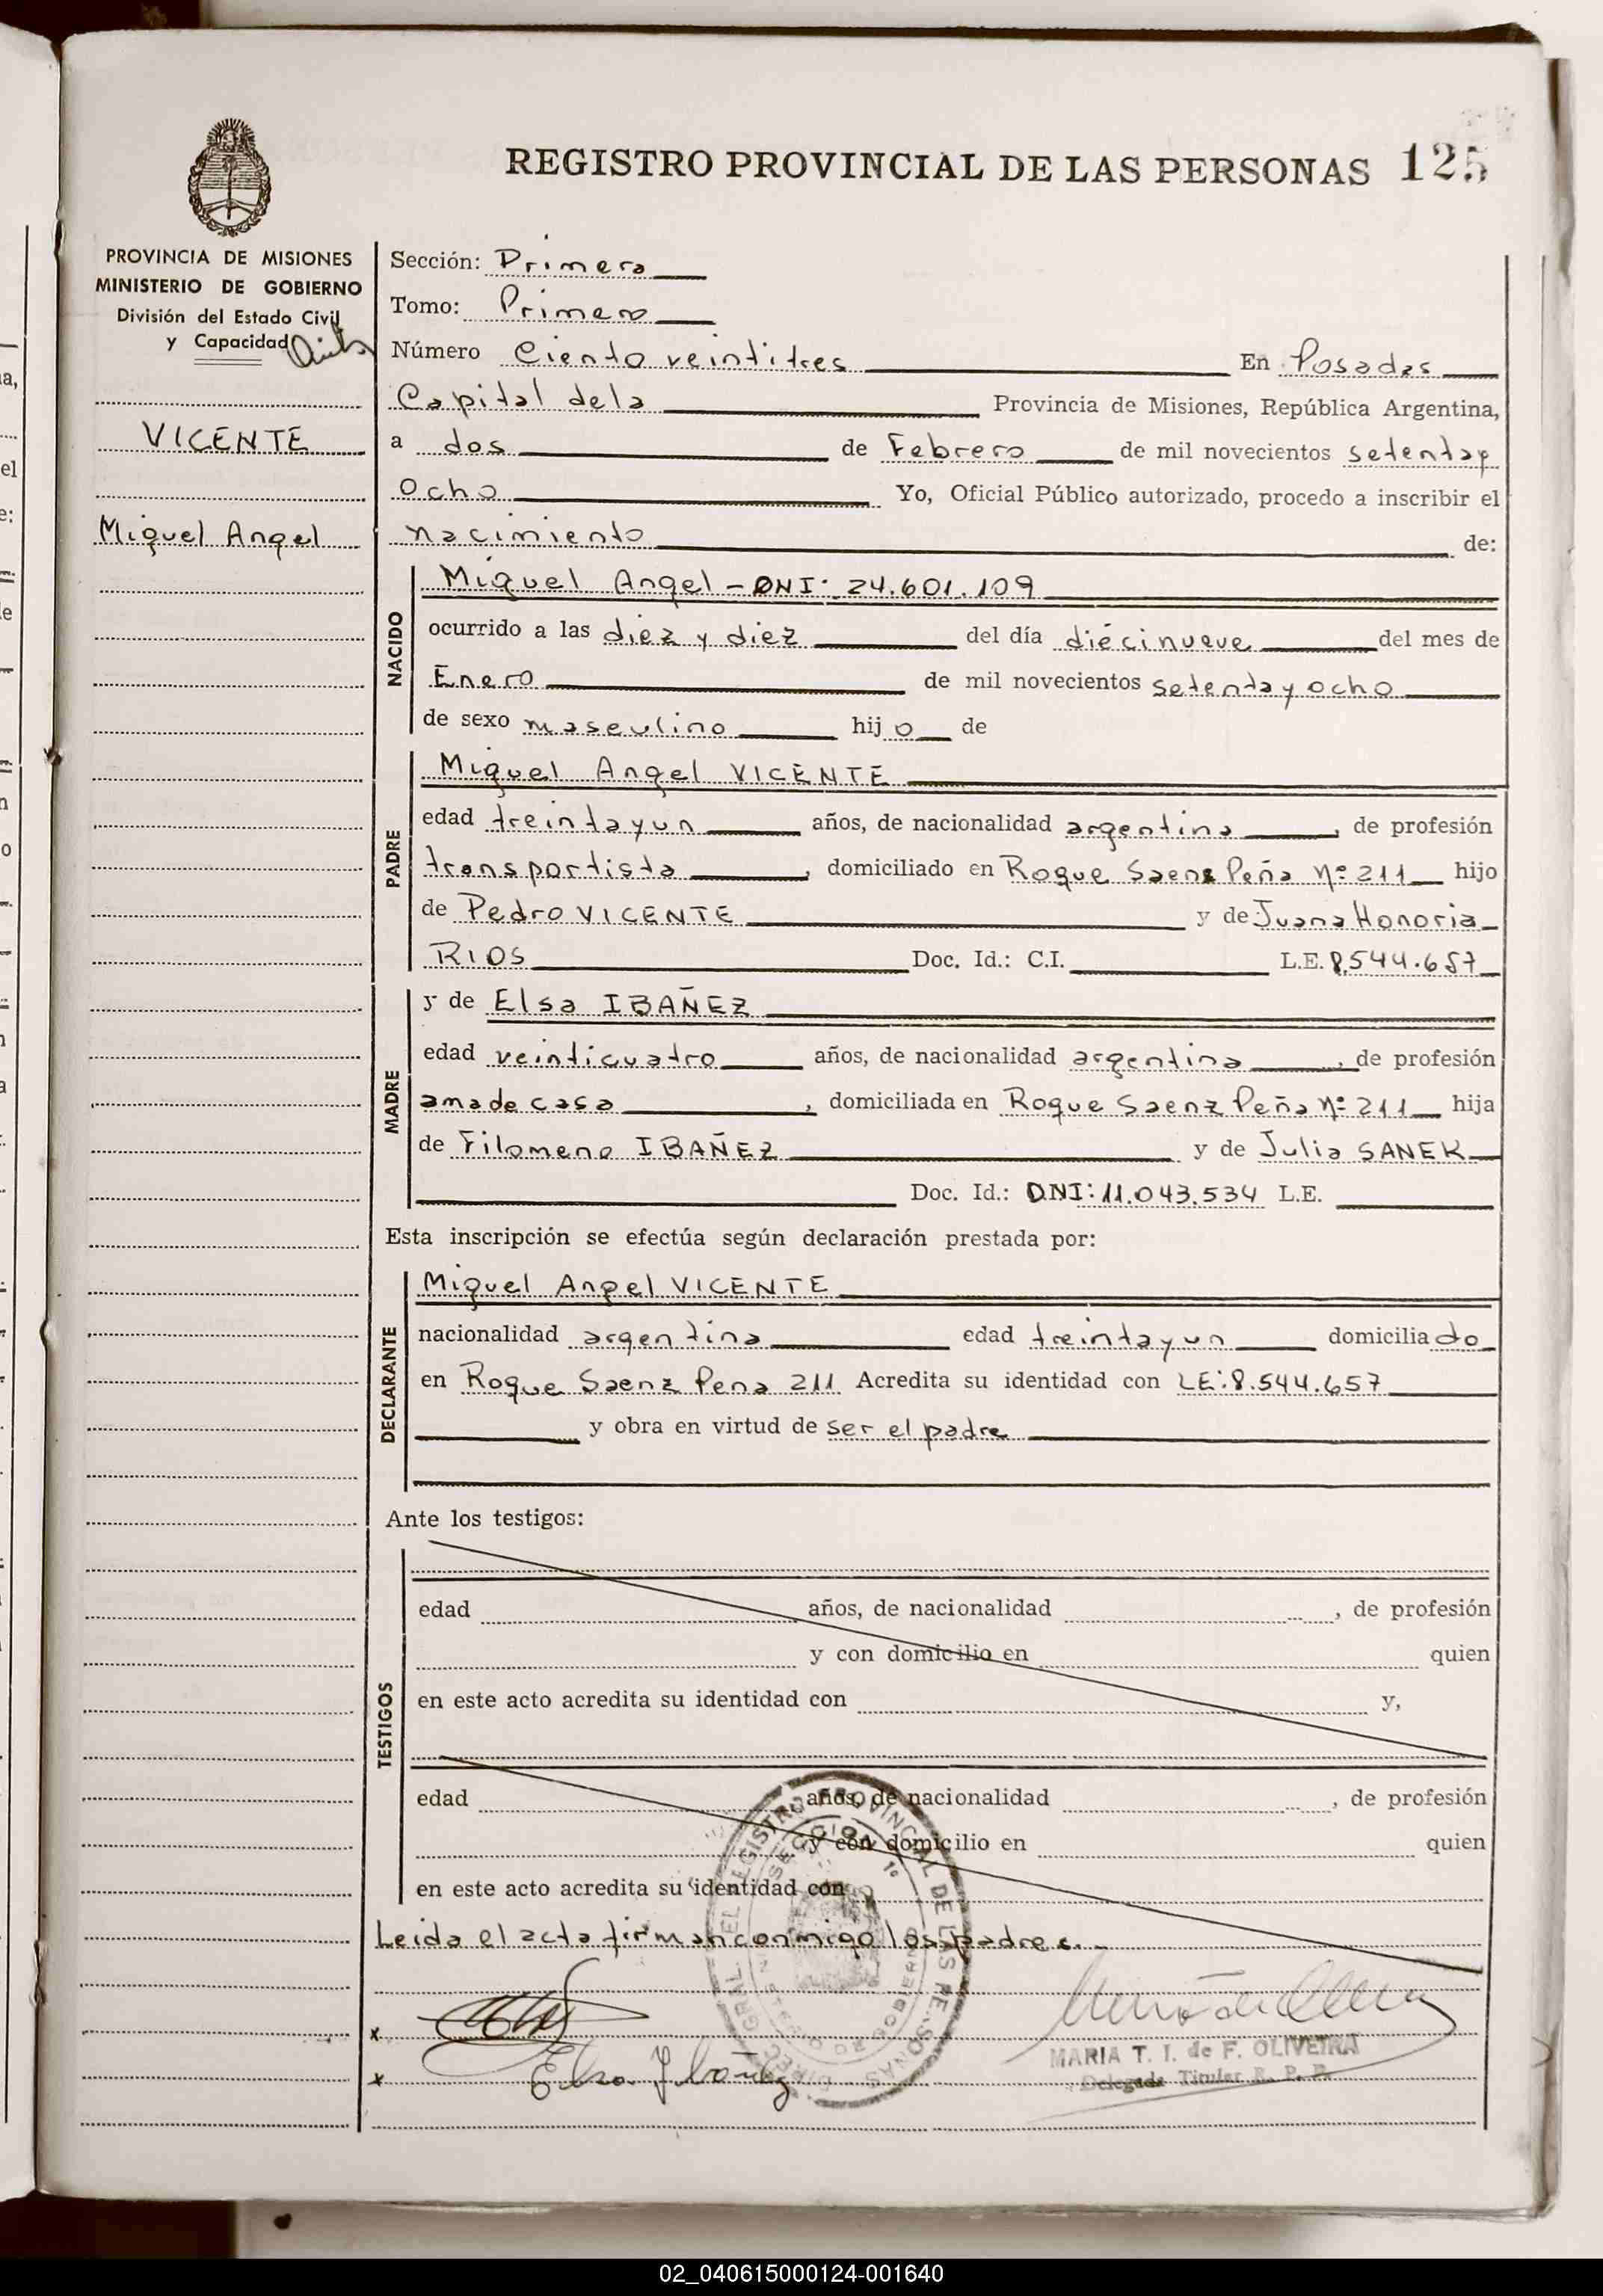 REGISTRO PROVINCIAL DE LAS PERSONAS 125
PROVINCIA DE MISIONES
MINISTERIO DE GOBIERNO
División del Estado Civil
y Capacidad
VICENTE
Miguel Angel
Sección: Primera
Tomo: Primero
Número Ciento veintitres En Posadas
Capital de la Provincia de Misiones, República Argentina,
a dos de Febrero de mil novecientos setenta y
ocho Yo, Oficial Público autorizado, procedo a inscribir el
nacimiento de:
NACIDO
Miguel Angel - DNI: 24.601.109
ocurrido a las diez y diez del día diecinueve del mes de
Enero de mil novecientos setenta y ocho
de sexo masculino hijo de
PADRE
Miguel Angel VICENTE
edad treinta y un años, de nacionalidad argentina, de profesión
transportista, domiciliado en Roque Saenz Peña Nº 211 hijo
de Pedro VICENTE y de Juana Honoria
RIOS Doc. Id.: C.I. L.E. 8.544.657
MADRE
y de Elsa IBAÑEZ
edad veinticuatro años, de nacionalidad argentina, de profesión
ama de casa, domiciliada en Roque Saenz Peña Nº 211 hija
de Filomeno IBAÑEZ y de Julia SANEK
Doc. Id.: DNI: 11.043.534 L.E.
Esta inscripción se efectúa según declaración prestada por:
DECLARANTE
Miguel Angel VICENTE
nacionalidad argentina edad treinta y un domiciliado
en Roque Saenz Pena 211 Acredita su identidad con LE: 8.544.657
y obra en virtud de ser el padre
Ante los testigos:
TESTIGOS
edad años, de nacionalidad , de profesión
y con domicilio en quien
en este acto acredita su identidad con y,
edad años, de nacionalidad , de profesión
y con domicilio en quien
en este acto acredita su identidad con
Leida el acta firman conmigo los padres.-
x
x Elsa Ibañez
MARIA T. I. de F. OLIVEIRA
Delegada Titular R. P. P.
DIREC. GRAL. DEL REGISTRO PROVINCIAL DE LAS PERSONAS
SECCION 1º
MINISTERIO DE GOBIERNO
02_040615000124-001640